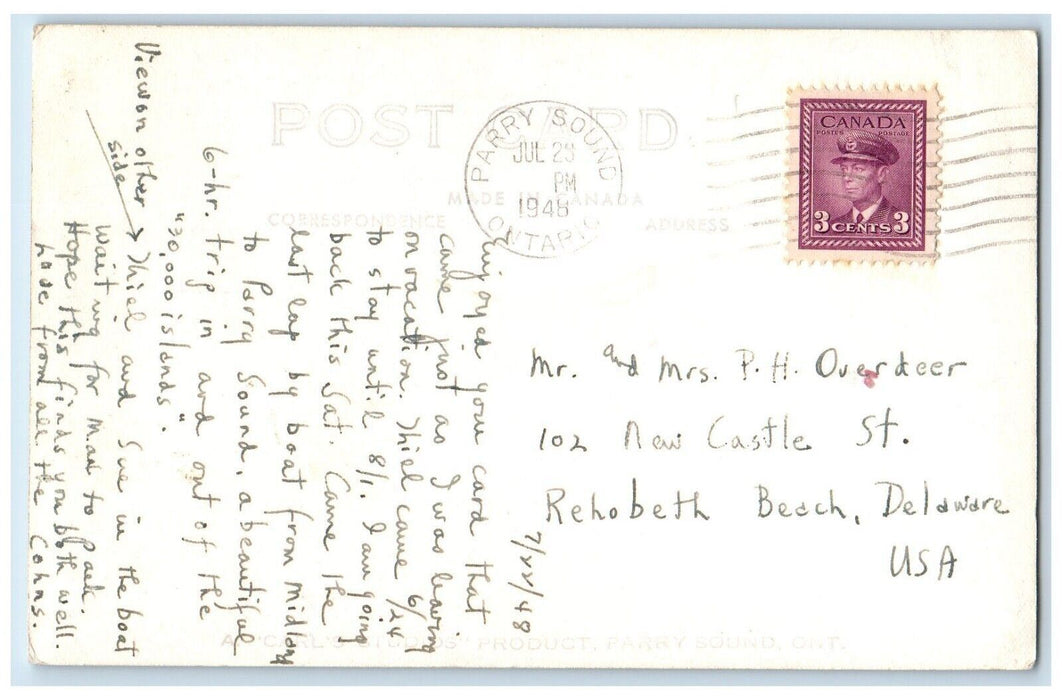 POST CARD
MADE IN CANADA
CORRESPONDENCE
ADDRESS
PARRY SOUND
JUL 23
PM
1948
ONTARIO
CANADA
POSTES POSTAGE
3 CENTS 3
7/22/48
Enjoyed your card that
came just as I was leaving
on vacation. Thiel came 6/24
to stay until 8/1. I am going
back this Sat. Came the
last lap by boat from Midland
to Parry Sound, a beautiful
6-hr. trip in and out of the
"30,000 islands".
View on other
side → Thiel and Sue in the boat
waiting for Max to park.
Hope this finds you both well.
Love from all the Cohns.
Mr. and Mrs. P. H. Overdeer
102 New Castle St.
Rehobeth Beach, Delaware
USA
A "CARL'S STUDIOS" PRODUCT, PARRY SOUND, ONT.